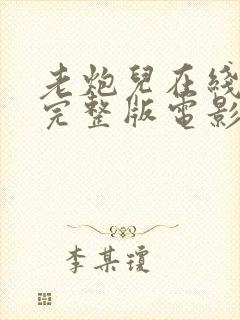 老炮兒在綫
完整版電影
李某瓊